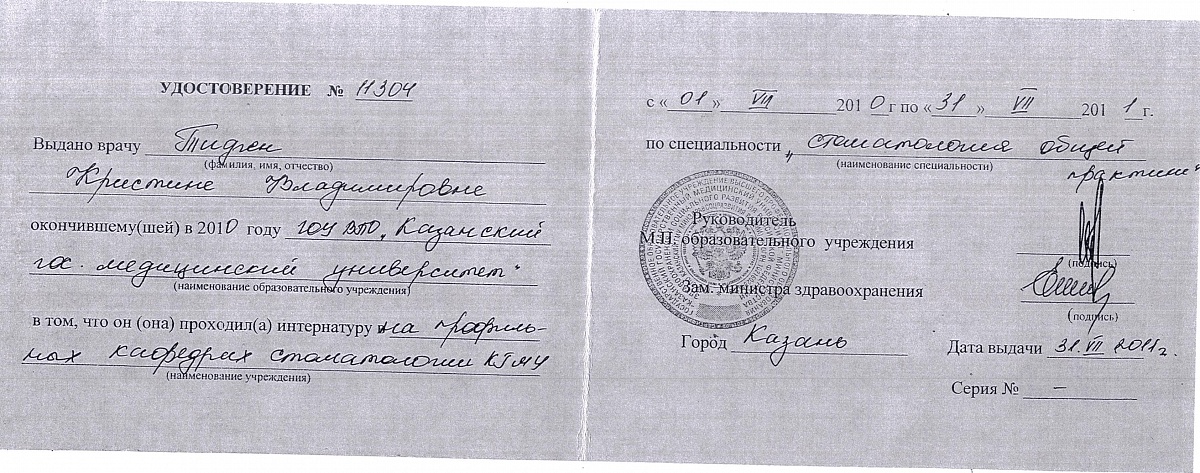 УДОСТОВЕРЕНИЕ № 11304
Выдано врачу Тидген
(фамилия, имя, отчество)
Кристине Владимировне
окончившему(шей) в 2010 году ГОУ ВПО „Казанский
гос. медицинский университет"
(наименование образовательного учреждения)
в том, что он (она) проходил(а) интернатуру на профиль-
ных кафедрах стоматологии КГМУ
(наименование учреждения)
с « 01 » VII 2010 г по « 31 » VII 2011 г.
по специальности „стоматология общей
(наименование специальности)
практики"
Руководитель
М.П. образовательного учреждения
(подпись)
Зам. министра здравоохранения
(подпись)
Город Казань
Дата выдачи 31.VII 2011г.
Серия № –